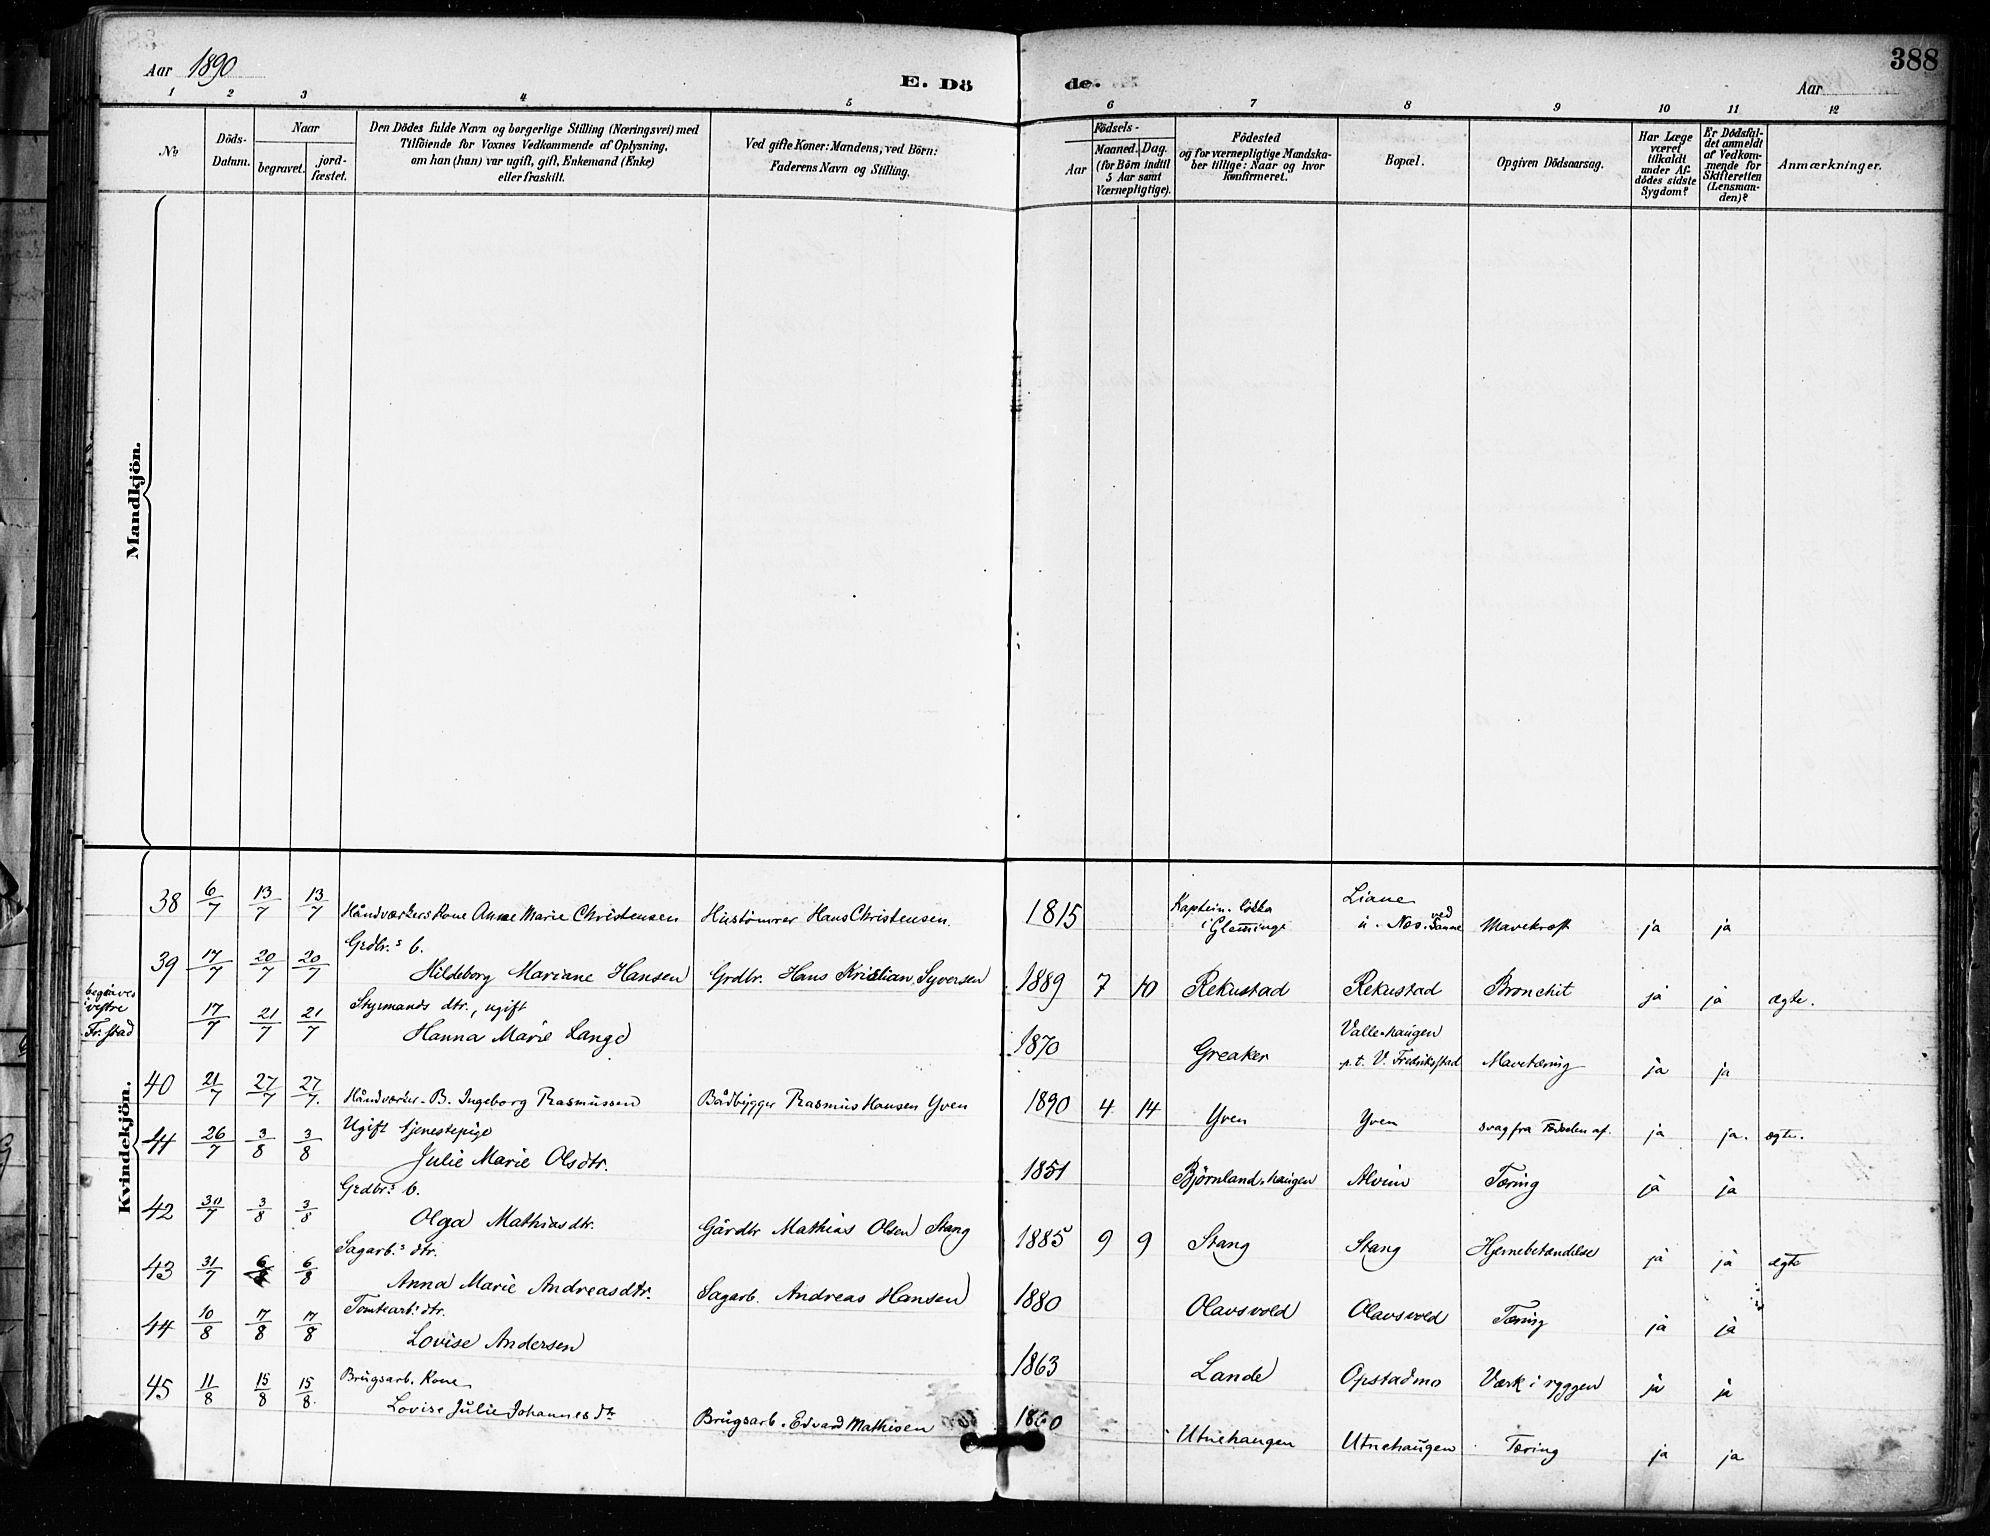 Aar 1890
E. Dö
de.
Aar
388
1 2 3 4 5 6 7 8 9 10 11 12
No
Döds-Datum.
Naar
begravet.
jord-fæstet.
Den Dödes fulde Navn og borgerlige Stilling (Næringsvei) med
Tilföiende for Voxnes Vedkommende af Oplysning,
om han (hun) var ugift, gift, Enkemand (Enke)
eller fraskilt.
Ved gifte Koner: Mandens, ved Börn:
Faderens Navn og Stilling.
Födsels-
Aar
Maaned. Dag.
(for Börn indtil
5 Aar samt
Værnepligtige).
Födested
og for værnepligtige Mandska-
ber tillige: Naar og hvor
Konfirmeret.
Bopæl.
Opgiven Dödsaarsag.
Har Læge
været
tilkaldt
under Af-
dödes sidste
Sygdom?
Er Dödsfal-
det anmeldt
af Vedkom-
mende for
Skifteretten
(Lensman-
den)?
Anmærkninger.
Mandkjön.
Kvindekjön.
38 6/7 13/7 13/7 Håndværkers Kone Anne Marie Christensen Hustömrer Hans Christensen. 1815 Kaptein-løkka i Glemminge Liane u. Næs. ved Sanne Mavekræft ja ja
39 17/7 20/7 20/7 Grdbr.s b.
Hildeborg Mariane Hansen Grdbr. Hans Kristian Syversen 1889 7 10 Rekustad Rekustad Bronchit ja ja ægte.
begraves vestre Fr. stad 17/7 21/7 21/7 Styrmands dtr., ugift
Hanna Marie Lange 1870 Greaker Valle-haugen p.t. V. Fredriksstad Mavetæring ja ja
40 21/7 27/7 27/7. Håndværker-B. Ingeborg Rasmussen Bådbygger Rasmus Hansen Yven 1890 4 14 Yven Yven svag fra Fødselen af. ja ja. ægte.
41 26/7 3/8 3/8 Ugift tjenestepige
Julie Marie Olsdtr. 1851 Bjørnland-haugen Alvim Tæring ja ja
42 30/7 3/8 3/8 Grdbr.s b.
Olga Mathiasdtr. Gårdbr Mathias Olsen Stang 1885 9 9 Stang Stang Hjernebetændelse ja ja ægte
43 31/7 6/8 6/8 Sagarb.s dtr.
Anna Marie Andreasdtr. Sagarb. Andreas Hansen 1880 Olavsvold Olavsvold Tæring ja ja
44 10/8 17/8 17/8 Tomtearb.s dtr.
Lovise Andersen 1863 Lande Opstadmo Værk i ryggen ja ja
45 11/8 15/8 15/8. Brugsarb. Kone
Lovise Julie Johannesdtr Brugsarb. Edvard Mathisen 1860 Utnehaugen Utnehaugen Tæring ja ja